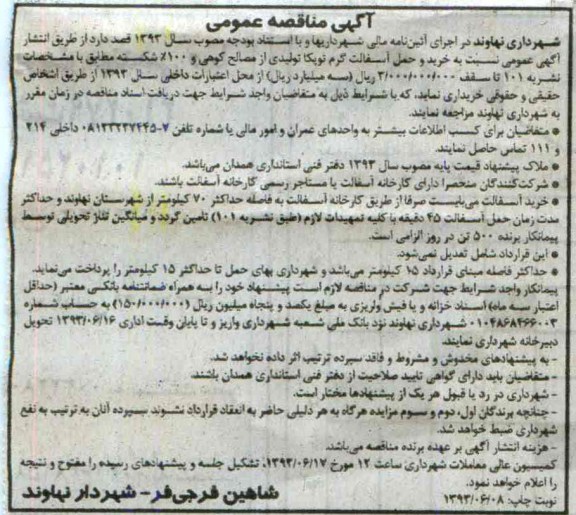 آگهی مناقصه عمومی
شهرداری نهاوند در اجرای آئین‌نامه مالی شهرداریها و با استناد بودجه مصوب سال ۱۳۹۳ قصد دارد از طریق انتشار
آگهی عمومی نسبت به خرید و حمل آسفالت گرم توپکا تولیدی از مصالح کوهی و ۱۰۰٪ شکسته مطابق با مشخصات
نشریه ۱۰۱ تا سقف ۳/۰۰۰/۰۰۰/۰۰۰ ریال (سه میلیارد ریال) از محل اعتبارات داخلی سال ۱۳۹۳ از طریق اشخاص
حقیقی و حقوقی خریداری نماید، که با شرایط ذیل به متقاضیان واجد شرایط جهت دریافت اسناد مناقصه در زمان مقرر
به شهرداری نهاوند مراجعه نمایند.
● متقاضیان برای کسب اطلاعات بیشتر به واحدهای عمران و امور مالی یا شماره تلفن ۷-۰۸۱۳۳۲۳۷۴۴۵ داخلی ۲۱۴
و ۱۱۱ تماس حاصل نمایند.
● ملاک پیشنهاد قیمت پایه مصوب سال ۱۳۹۳ دفتر فنی استانداری همدان می‌باشد.
● شرکت‌کنندگان منحصرا دارای کارخانه آسفالت یا مستاجر رسمی کارخانه آسفالت باشند.
● خرید آسفالت می‌بایست صرفا از طریق کارخانه آسفالت به فاصله حداکثر ۷۰ کیلومتر از شهرستان نهاوند و حداکثر
مدت زمان حمل آسفالت ۴۵ دقیقه با کلیه تمهیدات لازم (طبق نشریه ۱۰۱) تامین گردد و میانگین تناژ تحویلی توسط
پیمانکار برنده ۵۰۰ تن در روز الزامی است.
● این قرارداد شامل تعدیل نمی‌شود.
● حداکثر فاصله مبنای قرارداد ۱۵ کیلومتر می‌باشد و شهرداری بهای حمل تا حداکثر ۱۵ کیلومتر را پرداخت می‌نماید.
پیمانکار واجد شرایط جهت شرکت در مناقصه لازم است پیشنهاد خود را به همراه ضمانتنامه بانکی معتبر (حداقل
اعتبار سه ماه) اسناد خزانه و یا فیش واریزی به مبلغ یکصد و پنجاه میلیون ریال (۱۵۰/۰۰۰/۰۰۰) به حساب شماره
۰۱۰۴۸۶۸۴۶۶۰۰۳ شهرداری نهاوند نزد بانک ملی شعبه شهرداری واریز و تا پایان وقت اداری ۱۳۹۳/۰۶/۱۶ تحویل
دبیرخانه شهرداری نمایند.
- به پیشنهادهای مخدوش و مشروط و فاقد سپرده ترتیب اثر داده نخواهد شد.
- متقاضیان باید دارای گواهی تایید صلاحیت از دفتر فنی استانداری همدان باشند.
- شهرداری در رد یا قبول هر یک از پیشنهادها مختار است.
- چنانچه برندگان اول، دوم و سوم مزایده هرگاه به هر دلیلی حاضر به انعقاد قرارداد نشوند سپرده آنان به ترتیب به نفع
شهرداری ضبط خواهد شد.
- هزینه انتشار آگهی بر عهده برنده مناقصه می‌باشد.
کمیسیون عالی معاملات شهرداری ساعت ۱۲ مورخ ۱۳۹۳/۰۶/۱۷، تشکیل جلسه و پیشنهادهای رسیده را مفتوح و نتیجه
را اعلام خواهد نمود.
نوبت چاپ: ۱۳۹۳/۰۶/۰۸
شاهین فرجی‌فر - شهردار نهاوند